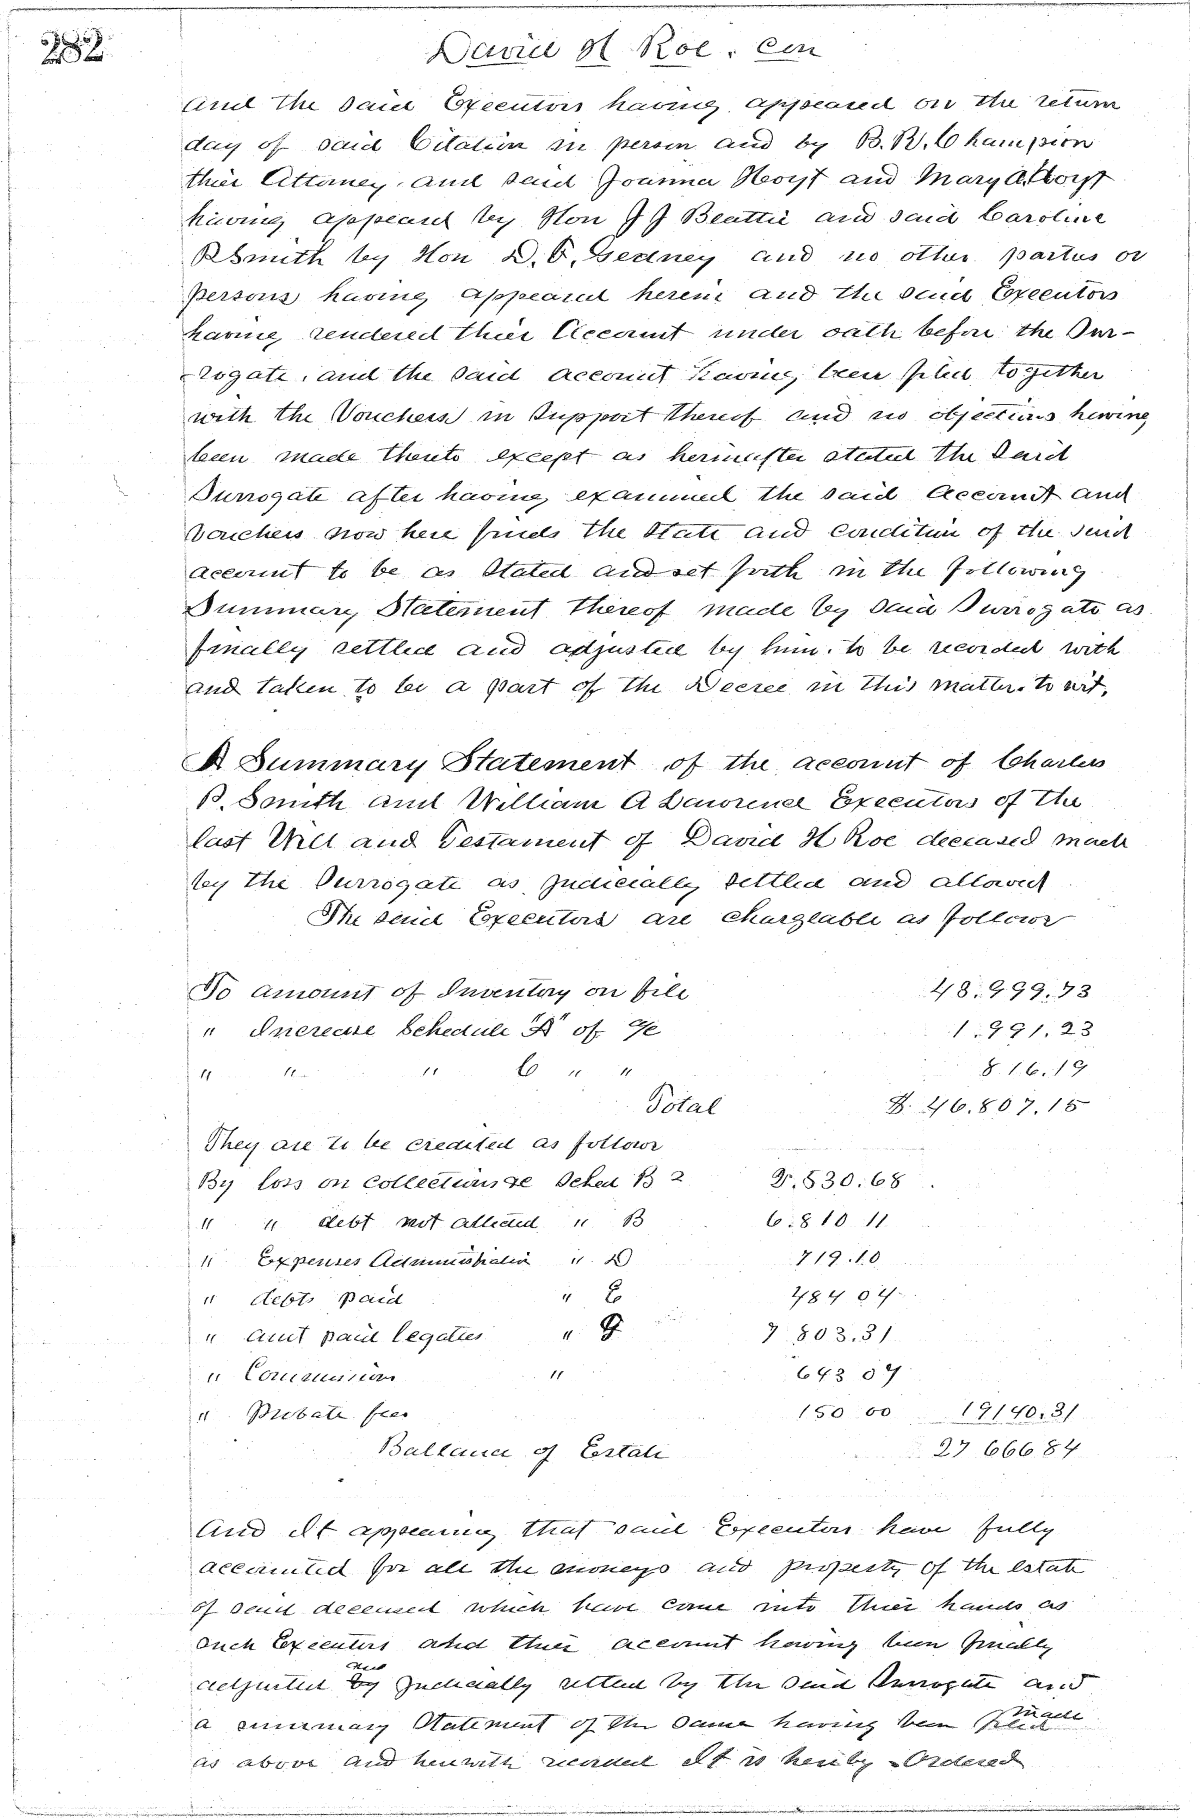 282
David H Roe. Con
And the said Executors having appeared on the return
day of said Citation in person and by B. R. Champion
thier Attorney. and said Joanna Hoyt and Mary A. Hoyt
having appeard by Hon J J Beattie and said Caroline
R Smith by Hon D. F. Gedney and no other parties or
persons having appeared herein and the said Executors
having rendered thier Account under oath before the Sur-
-rogate. and the said account having been filed together
with the Vouchers in Support thereof and no objections having
been made thereto except as herinafter stated the said
Surrogate after having examined the said Account and
vouchers now here finds the State and Condition of the said
account to be as Stated and set forth in the following
Summary Statement thereof made by said Surrogate as
finally settled and adjusted by him. to be recorded with
and taken to be a part of the Decree in this matter. to wit,
A Summary Statement of the account of Charles
B. Smith and William A Lawrence Executors of the
last Will and Testament of David H Roe deceased made
by the Surrogate as Judicially Settled and allowed
The said Executors are chargeable as follows
To amount of Inventory on file 43.999.73
" Increase Schedule "A" of %c 1.991.23
" " " C " " 816.19
Total $ 46.807.15
They are to be credited as follows
By loss on collections &c Sched B 2 2.530.68
" " debt not collected " B 6.810 11
" Expenses Administration " D 719.10
" debts paid " E 484 04
" amt paid legaties " G 7 803.31
" Commission " 643 07
" Probate fees 150 00 19140.31
Ballance of Estate 27 666 84
And It appearing that said Executors have fully
accounted for all the moneys and property of the estate
of said deceased which have come into thier hands as
such Executors and thier account having been finally
adjusted and by Judicially settled by the said Surrogate and
a summary Statement of the same having been filed made
as above and herewith recorded It is hereby Ordered